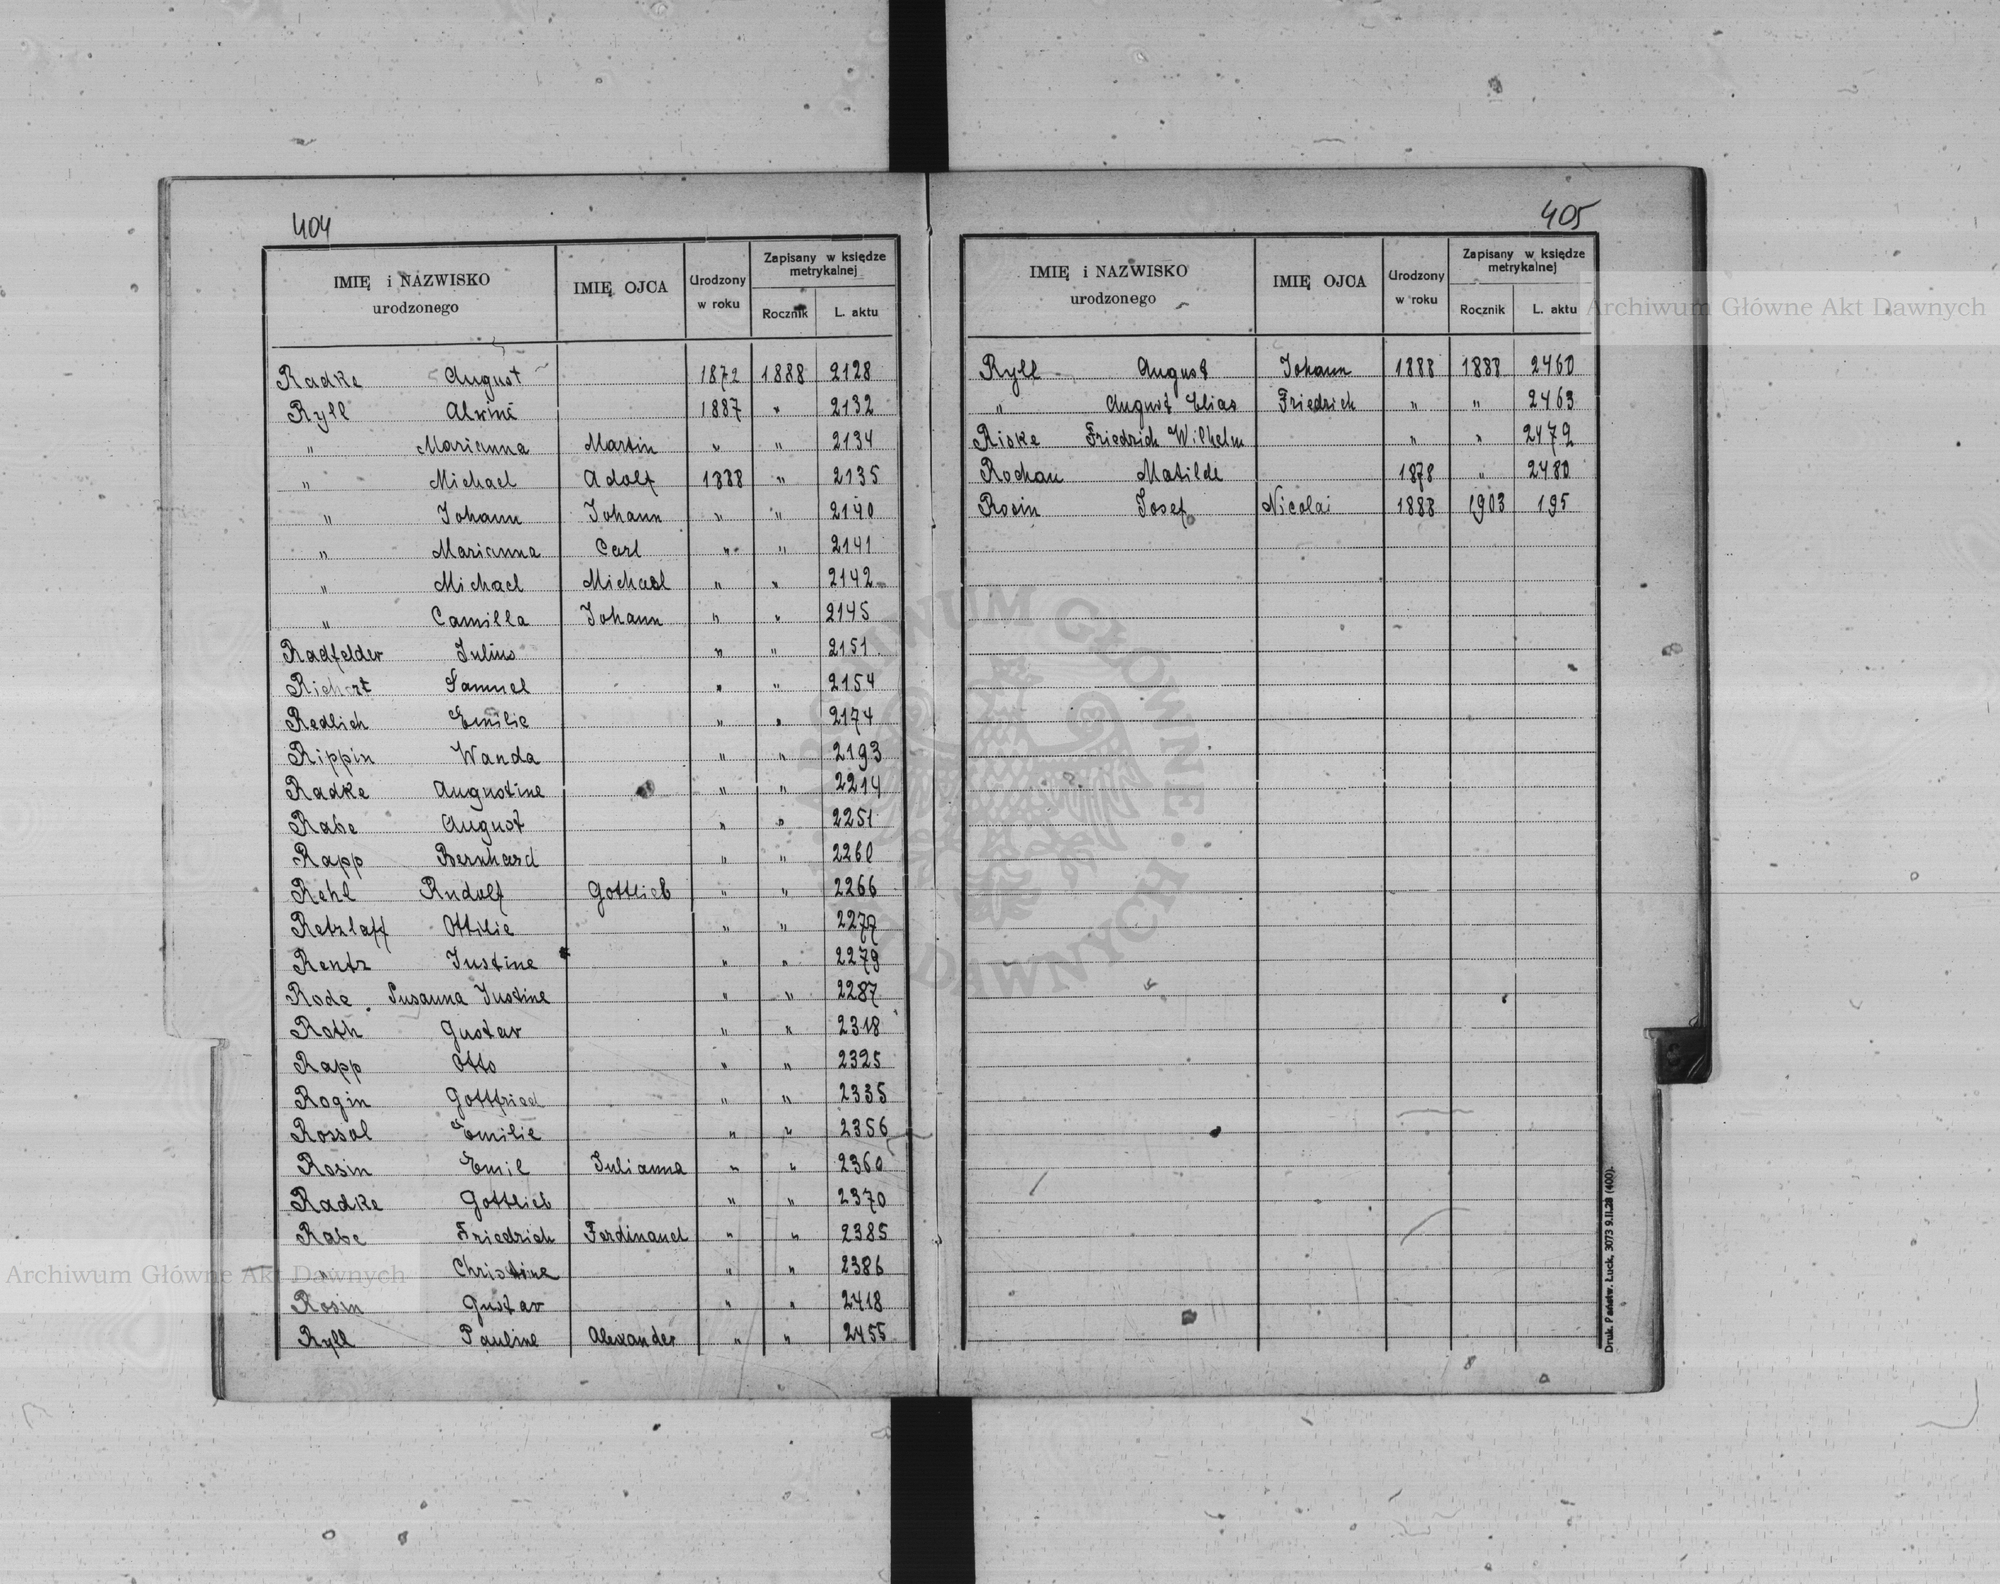 404
IMIĘ i NAZWISKO urodzonego IMIĘ OJCA Urodzony w roku Zapisany w księdze metrykalnej Rocznik L. aktu
Radke August 1872 1888 2128
Ryll Alvine 1887 " 2132
" Marianna Martin " " 2134
" Michael Adolf 1888 " 2135
" Johann Johann " " 2140
" Marianna Carl " " 2141
" Michael Michael " " 2142
" Camilla Johann " " 2145
Radfelder Julius " " 2151
Richert Samuel " " 2154
Redlich Emilie " " 2174
Rippin Wanda " " 2193
Radke Augustine " " 2214
Rabe August " " 2251
Rapp Bernhard " " 2260
Rehl Rudolf Gottlieb " " 2266
Retzlaff Ottilie " "
Rentz Justine " " 2279
Rode Susanna Justine " " 2287
Roth Gustav " " 2318
Rapp Otto " " 2325
Rogin Gottfried " " 2335
Rossol Emilie " " 2356
Rosin Emil Julianna " " 2360
Radke Gottlieb " " 2370
Rabe Friedrich Ferdinand " " 2385
" Christine " " 2386
Rosin Gustav " " 2418
Ryll Pauline Alexander " " 2455
405
IMIĘ i NAZWISKO urodzonego IMIĘ OJCA Urodzony w roku Zapisany w księdze metrykalnej Rocznik L. aktu
Ryll August Johann 1888 1888 2460
" August Elias Friedrich " " 2463
Riske Friedrich Wilhelm " " 2472
Rochau Matilde 1878 " 2480
Rosin Josef Nicolai 1888 1903 195
Druk. Państw. Łuck, 3073 9.II.28 (400).
Archiwum Główne Akt Dawnych
ARCHIWUM GŁÓWNE AKT DAWNYCH
Archiwum Główne Akt Dawnych